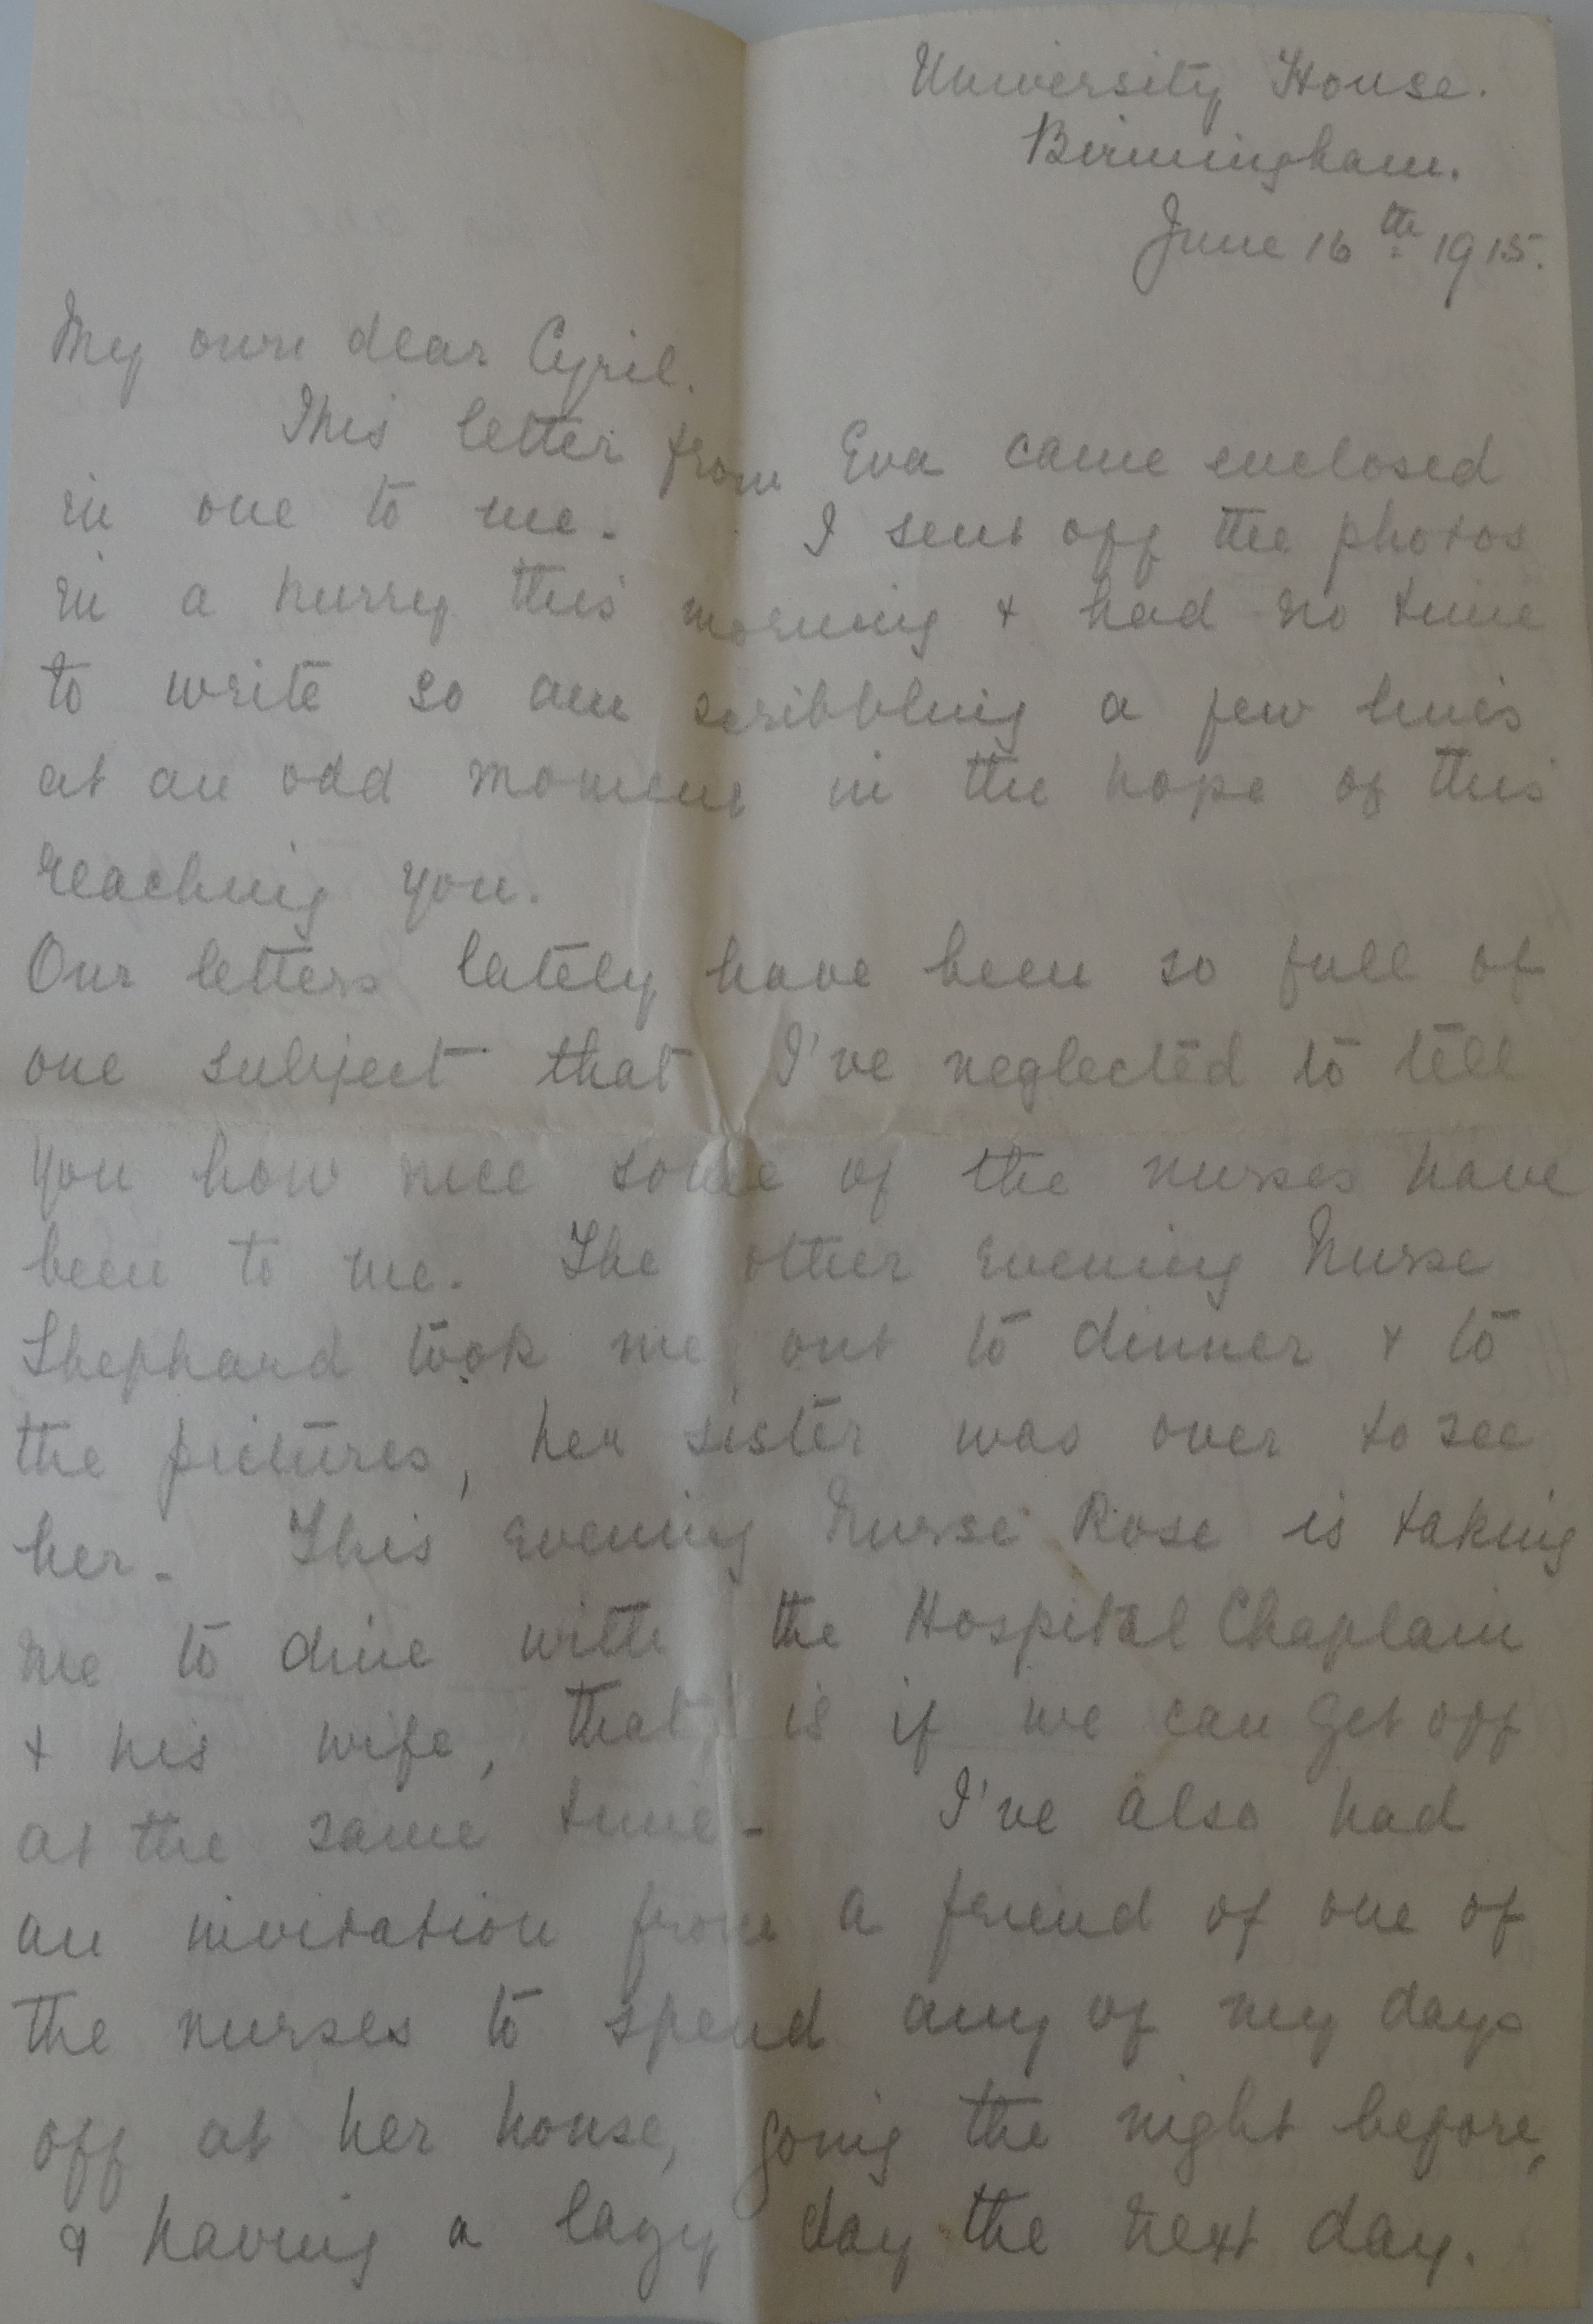 University House.
Birmingham.
June 16th 1915.
My own dear Cyril.
This letter from Eva came enclosed
in one to me. I sent off the photos
in a hurry this morning + had no time
to write so am scribbling a few lines
at an odd moment in the hope of this
reaching you.
Our letters lately have been so full of
one subject that I've neglected to tell
you how nice some of the nurses have
been to me. The other evening Nurse
Shephard took me out to dinner + to
the pictures, her sister was over to see
her. This evening Nurse Rose is taking
me to dine with the Hospital Chaplain
+ his wife, that is if we can get off
at the same time - I've also had
an invitation from a friend of one of
the nurses to spend any of my days
off at her house, going the night before,
& having a lazy day the next day.